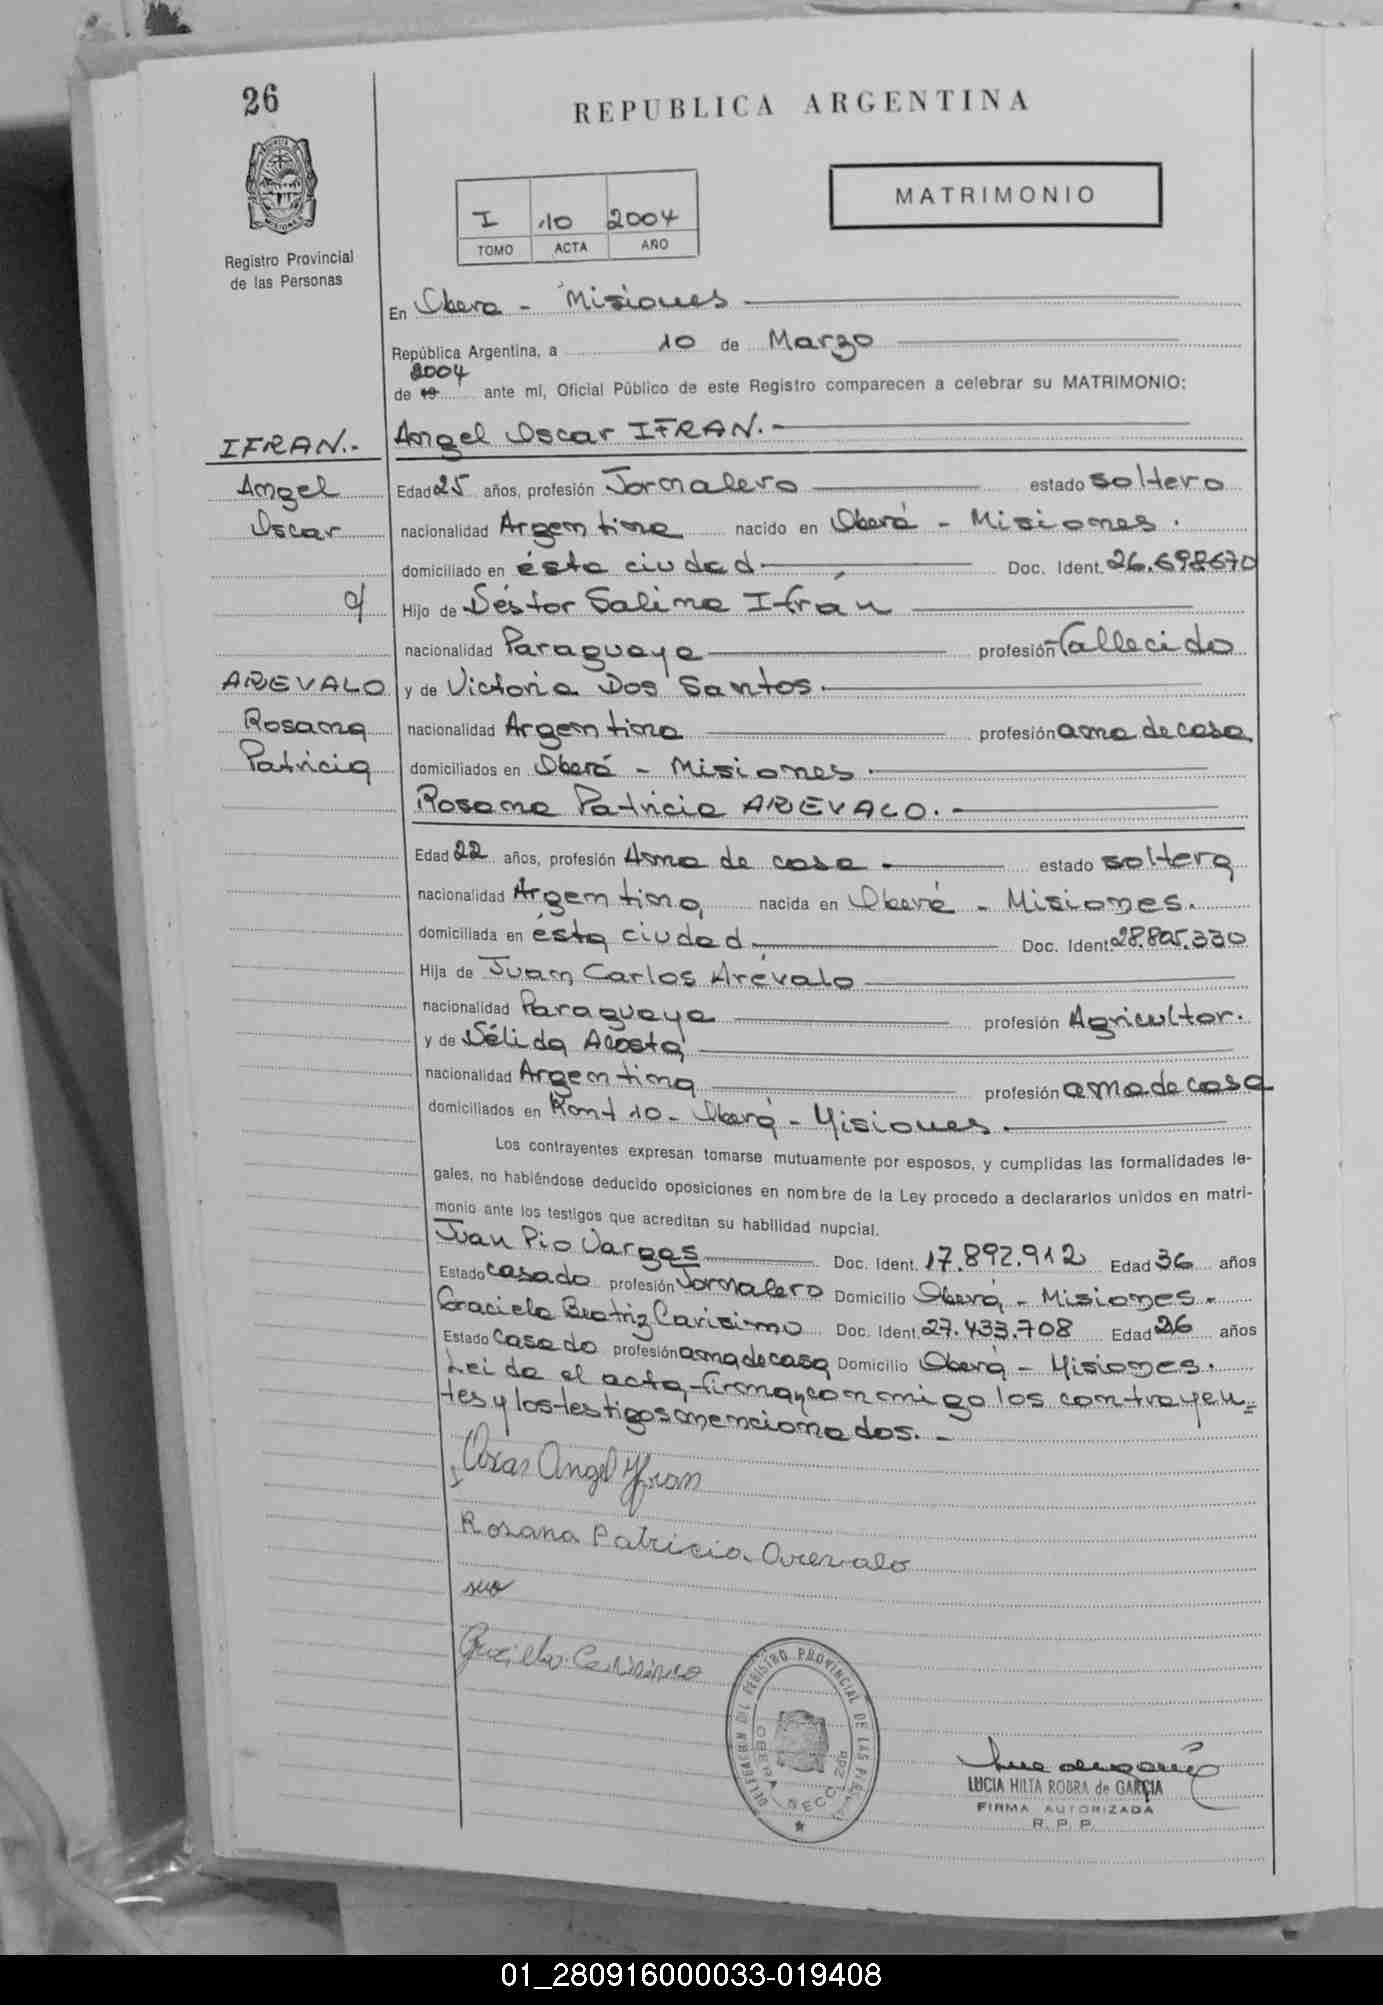 26
REPUBLICA ARGENTINA
MATRIMONIO
I 10 2004
TOMO ACTA AÑO
Registro Provincial
de las Personas
En Obera - Misiones
República Argentina, a 10 de Marzo
2004
de 19 ante mí, Oficial Público de este Registro comparecen a celebrar su MATRIMONIO:
IFRAN.-
Angel Oscar IFRAN.-
Angel
Edad 25 años, profesión Jornalero estado soltero
Oscar
nacionalidad Argentina nacido en Oberá - Misiones.
domiciliado en ésta ciudad Doc. Ident. 26.698670
c/
Hijo de Néstor Salina Ifrán
nacionalidad Paraguaya profesión fallecido
AREVALO
y de Victoria Dos Santos.
Rosana
nacionalidad Argentina profesión ama de casa
Patricia
domiciliados en Oberá - Misiones.
Rosana Patricia AREVALO.-
Edad 22 años, profesión Ama de casa estado soltera
nacionalidad Argentina nacida en Oberá - Misiones.
domiciliada en ésta ciudad Doc. Ident. 28.805.330
Hija de Juan Carlos Arévalo
nacionalidad Paraguaya profesión Agricultor.
y de Nélida Acosta
nacionalidad Argentina profesión ama de casa
domiciliados en 10 - Oberá - Misiones.
Los contrayentes expresan tomarse mutuamente por esposos, y cumplidas las formalidades le-
gales, no habiéndose deducido oposiciones en nombre de la Ley procedo a declararlos unidos en matri-
monio ante los testigos que acreditan su habilidad nupcial.
Juan Pio Vargas Doc. Ident. 17.892.912 Edad 36 años
Estado casado profesión Jornalero Domicilio Oberá - Misiones.-
Graciela Beatriz Carisimo Doc. Ident. 27.433.708 Edad 26 años
Estado Casado profesión ama de casa Domicilio Oberá - Misiones.
Leida el acta, firman conmigo los contrayen=
tes y los testigos mencionados.-
Oscar Angel Yfran
Rosana Patricia Arevalo
Graciela Carisimo
DELEGACION DEL REGISTRO PROVINCIAL DE LAS PERSONAS
OBERA SECC. 2da
LUCIA HILTA ROBRA de GARCIA
FIRMA AUTORIZADA
R. P. P.
01_280916000033-019408